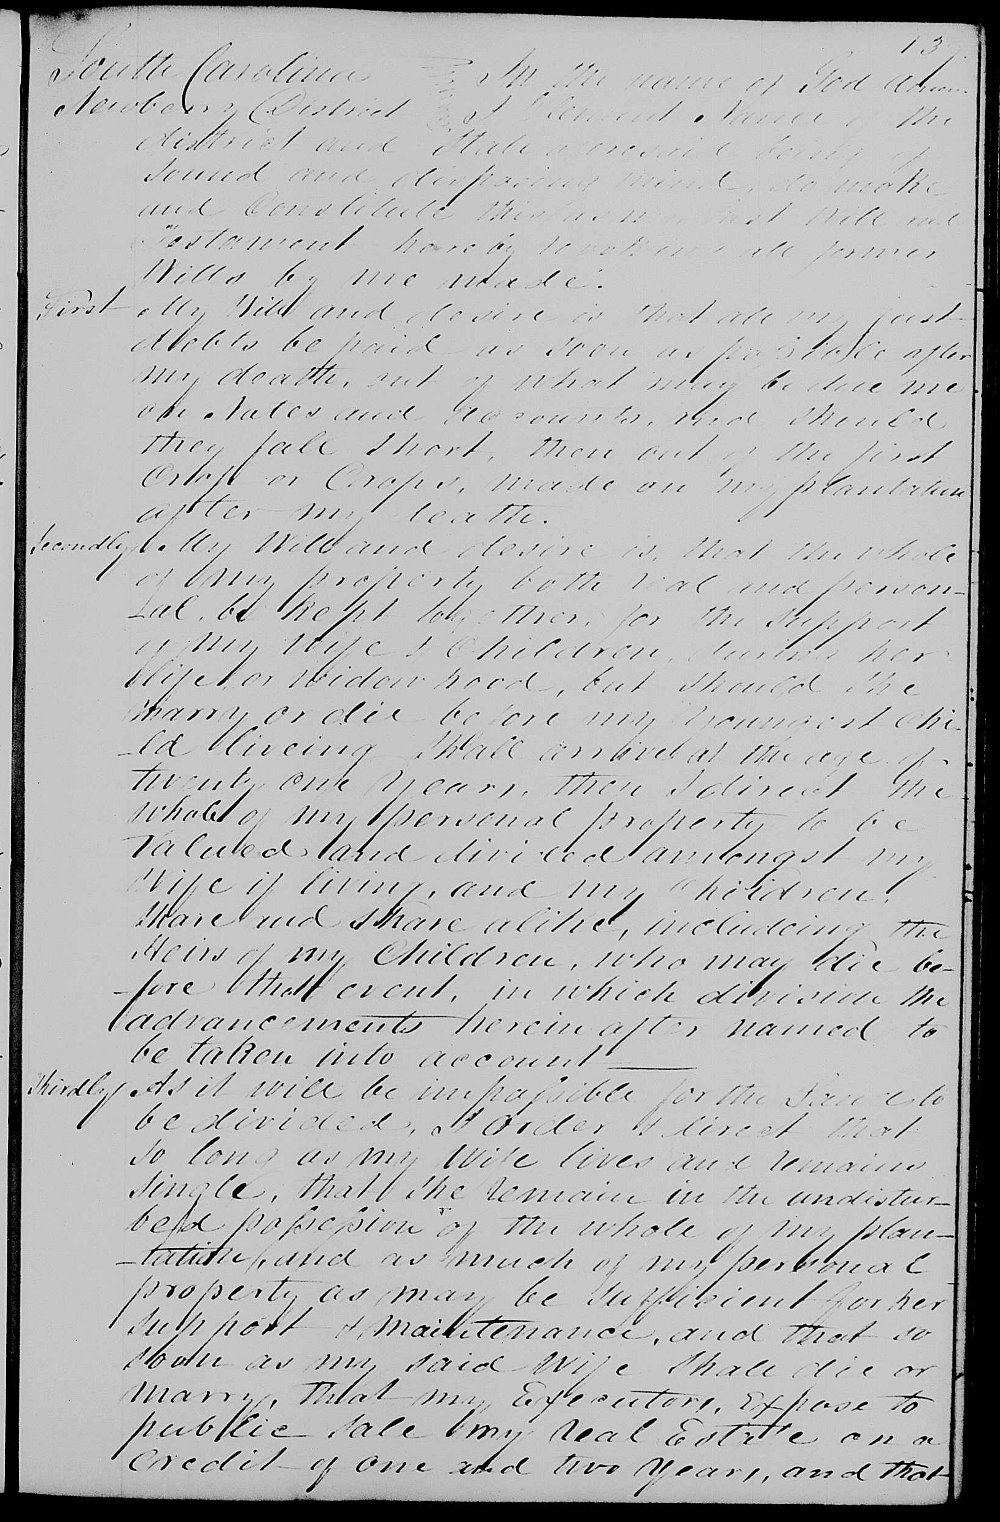 13
South Carolina In the name of God Amen
Newberry District I Clement Nance of the
district and State aforesaid being of
sound and disposing mind, do make
and Constitute this as my last Will and
Testament hereby revoking all former
Wills by me made.
First My Will and desire is that all my just
debts be paid as soon as possible after
my death, out of what may be due me
on Notes and accounts, and should
they fall short, then out of the first
Crop or Crops, made on my plantation
after my death.
Secondly My Will and desire is, that the whole
of my property both real and person-
-al, be kept together, for the support
of my wife & Children, during her
life, or widowhood, but should she
marry or die before my youngest chi-
-ld liveing shall arrive at the age of
twenty one Years, then I direct the
whole of my personal property to be
Valued and divided amongst my
Wife if living, and my Children,
share and share alike, includeing the
Heirs of my Children, who may die be-
-fore that event, in which division the
advancements herein after named to
be taken into account
Thirdly As it will be impossible for the Land to
be divided, I Order & direct that
so long as my Wife lives and remains
single, that she remain in the undistur-
bed possession of the whole of my plan-
-tation, and as much of my personal
property as may be sufficient for her
support & maintenance, and that so
soon as my said Wife shall die or
marry, that my Executors, Expose to
public sale my real Estate on a
Credit of one and two Years, and that